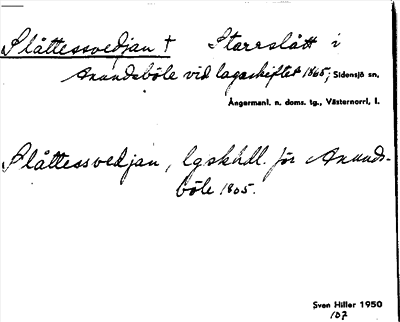 Slåttessvedjan † Starrslått i
Anundsböle vid lagaskiftet 1865; Sidensjö sn.
Ångermanl. n. doms. tg., Västernorrl. l.
Slåttessvedjan, lgskhdl. för Anunds-
böle 1805.
Sven Hiller 1950
107